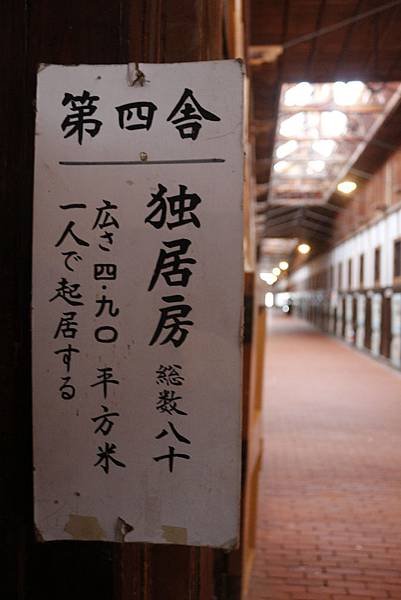 第四舎
独居房 総数八十
広さ 四・九〇 平方米
一人で起居する